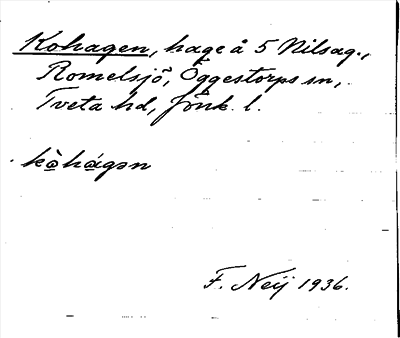 Kohagen, hage å 5 Nilsag.,
Romelsjö, Öggestorps sn,
Tveta hd, Jönk. l.
kòhágən
F. Neij 1936.